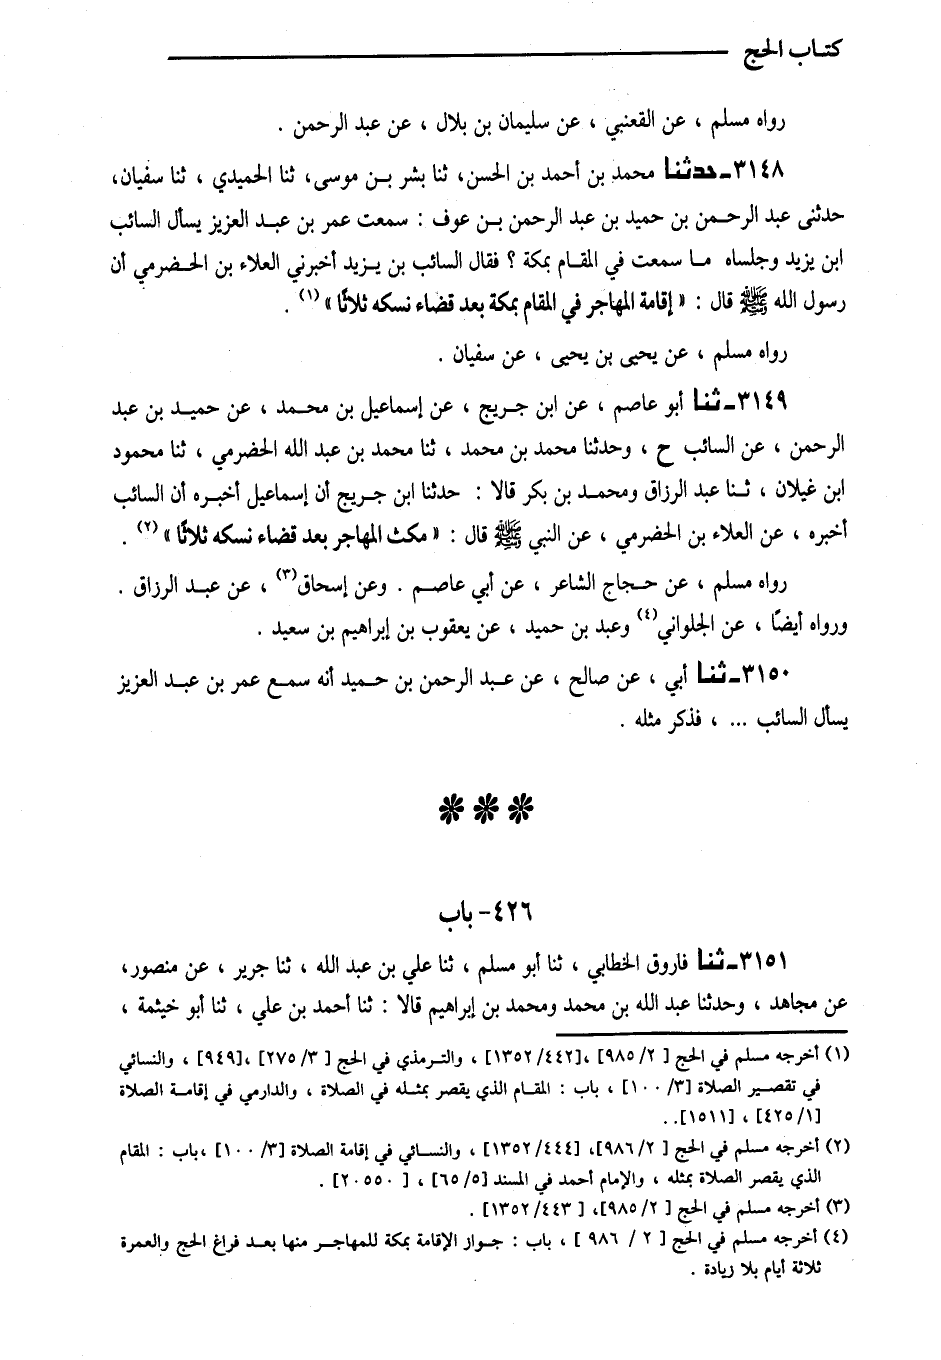 كتاب الحج
رواه مسلم ، عن القعنبي ، عن سليمان بن بلال ، عن عبد الرحمن .
٣١٤٨ـ حدثنا محمد بن أحمد بن الحسن، ثنا بشر بن موسى، ثنا الحميدي ، ثنا سفيان،
حدثنى عبد الرحمن بن حميد بن عبد الرحمن بن عوف : سمعت عمر بن عبد العزيز يسأل السائب
ابن يزيد وجلساه ما سمعت في المقام بمكة ؟ فقال السائب بن يزيد أخبرني العلاء بن الحضرمي أن
رسول الله ﷺ قال : « إقامة المهاجر في المقام بمكة بعد قضاء نسكه ثلاثًا » (١) .
رواه مسلم ، عن يحيى بن يحيى ، عن سفيان .
٣١٤٩ـ ثنا أبو عاصم ، عن ابن جريج ، عن إسماعيل بن محمد ، عن حميد بن عبد
الرحمن ، عن السائب ح ، وحدثنا محمد بن محمد ، ثنا محمد بن عبد الله الحضرمي ، ثنا محمود
ابن غيلان ، ثنا عبد الرزاق ومحمد بن بكر قالا : حدثنا ابن جريج أن إسماعيل أخبره أن السائب
أخبره ، عن العلاء بن الحضرمي ، عن النبي ﷺ قال : « مكث المهاجر بعد قضاء نسكه ثلاثًا » (٢) .
رواه مسلم ، عن حجاج الشاعر ، عن أبي عاصم . وعن إسحاق(٣) ، عن عبد الرزاق .
ورواه أيضًا ، عن الجلواني(٤) وعبد بن حميد ، عن يعقوب بن إبراهيم بن سعيد .
٣١٥٠ـ ثنا أبي ، عن صالح ، عن عبد الرحمن بن حميد أنه سمع عمر بن عبد العزيز
يسأل السائب ... ، فذكر مثله .
***
٤٢٦- باب
٣١٥١ـ ثنا فاروق الخطابي ، ثنا أبو مسلم ، ثنا علي بن عبد الله ، ثنا جرير ، عن منصور،
عن مجاهد ، وحدثنا عبد الله بن محمد ومحمد بن إبراهيم قالا : ثنا أحمد بن علي ، ثنا أبو خيثمة ،
(١) أخرجه مسلم في الحج [٩٨٥/٢] ،[١٣٥٢/٤٤٢] ، والترمذي في الحج [٢٧٥/٣] ،[٩٤٩] ، والنسائي
في تقصير الصلاة [١٠٠/٣] ، باب : المقام الذي يقصر بمثله في الصلاة ، والدارمي في إقامة الصلاة
[٤٢٥/١] ، [١٥١١]..
(٢) أخرجه مسلم في الحج [ ٩٨٦/٢]، [١٣٥٢/٤٤٤] ، والنسائي في إقامة الصلاة [١٠٠/٣] ،باب : المقام
الذي يقصر الصلاة بمثله ، والإمام أحمد في المسند [٦٥/٥] ، [ ٢٠٥٥٠] .
(٣) أخرجه مسلم في الحج [ ٩٨٥/٢]، [ ١٣٥٢/٤٤٣] .
(٤) أخرجه مسلم في الحج [ ٢ / ٩٨٦ ] ، باب : جواز الإقامة بمكة للمهاجر منها بعد فراغ الحج والعمرة
ثلاثة أيام بلا زيادة .